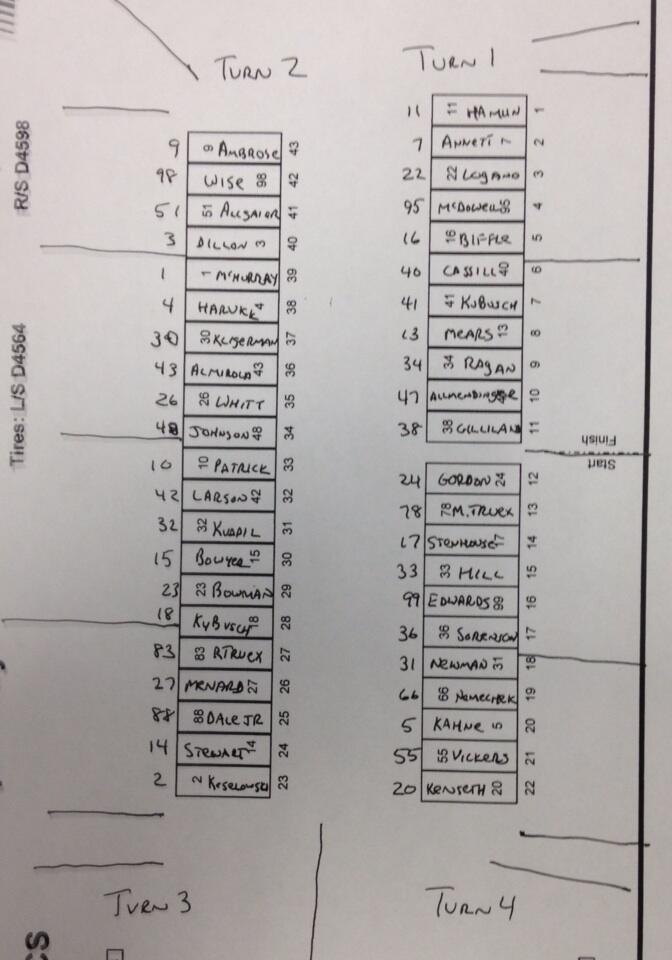 TURN 2
TURN 1
R/S D4598
Tires: L/S D4564
9 9 AMBROSE 43
98 WISE 98 42
51 51 ALLGAIER 41
3 DILLON 3 40
1 1 McMURRAY 39
4 HARVICK 4 38
30 30 KLIGERMAN 37
43 ALMIROLA 43 36
26 26 WHITT 35
48 JOHNSON 48 34
10 10 PATRICK 33
42 LARSON 42 32
32 32 KVAPIL 31
15 BOWYER 15 30
23 23 BOWMAN 29
18 KyBUSCH 18 28
83 83 RTRUEX 27
27 MENARD 27 26
88 88 DALE JR 25
14 STEWART 14 24
2 2 KESELOWSKI 23
11 11 HAMLIN 1
7 ANNETT 7 2
22 22 LOGANO 3
95 McDOWELL 95 4
16 16 BIFFLE 5
40 CASSILL 40 6
41 41 KUBUSCH 7
13 MEARS 13 8
34 34 RAGAN 9
47 ALLMENDINGER 10
38 38 GILLILAND 11
Finish
Start
24 GORDON 24 12
78 78 M.TRUEX 13
17 STENHOUSE 17 14
33 33 HILL 15
99 EDWARDS 99 16
36 36 SORENSON 17
31 NEWMAN 31 18
66 66 NEMECHEK 19
5 KAHNE 5 20
55 55 VICKERS 21
20 KENSETH 20 22
TURN 3
TURN 4
CS